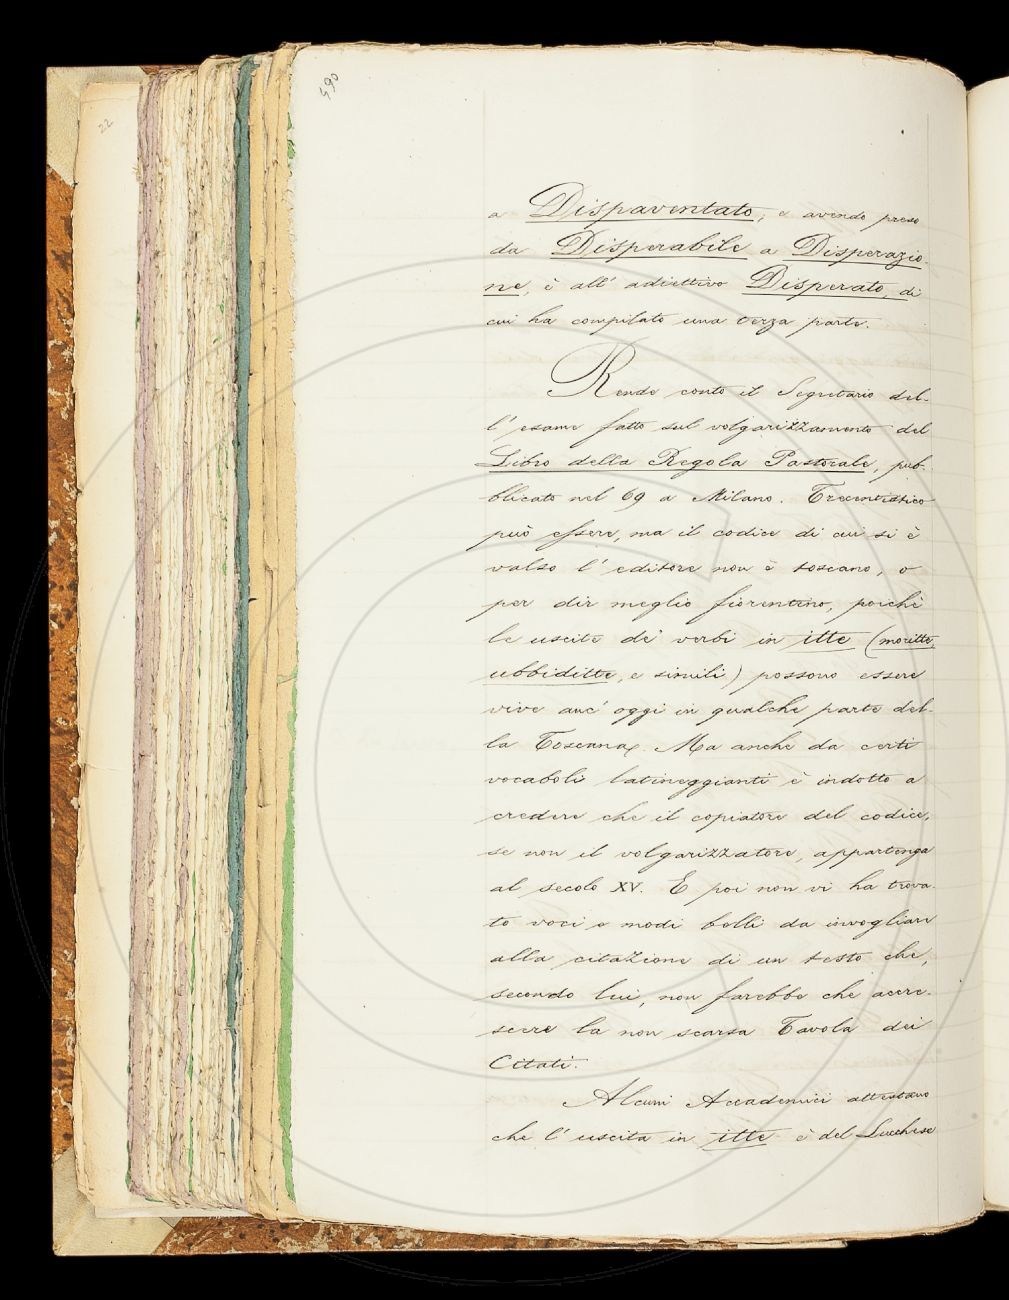 490
22
a Dispaventato; e avendo preso
da Disperabile a Disperazio-
ne, è all' adiettivo Disperato, di
cui ha compilato una terza parte.
Rende conto il Segretario del-
l' esame fatto sul volgarizzamento del
Libro della Regola Pastorale, pub-
blicato nel 69 a Milano. Trecentistico
può essere, ma il codice di cui si è
valso l' editore non è toscano, o
per dir meglio fiorentino, poichè
le uscite de' verbi in itte (moritte,
ubbiditte, e simili) possono essere
vive anc' oggi in qualche parte del-
la Toscana. Ma anche da certi
vocaboli latineggianti è indotto a
credere che il copiatore del codice,
se non il volgarizzatore, appartenga
al secolo XV. E poi non vi ha trova-
to voci o modi belli da invogliare
alla citazione di un testo che,
secondo lui, non farebbe che accre-
scere la non scarsa Tavola dei
Citati.
Alcuni Accademici attestano
che l' uscita in itte è del Lucchese